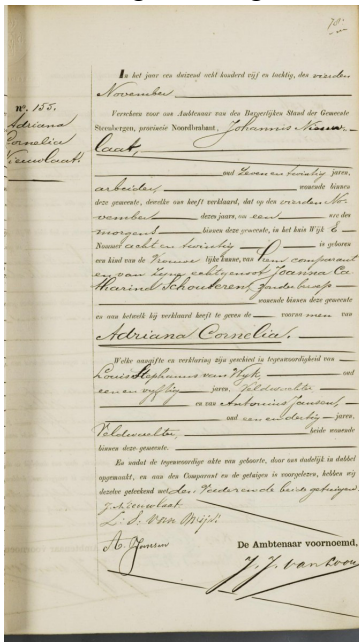 78.
In het jaar een duizend acht honderd vijf en tachtig, den vierden
November
Verscheen voor ons Ambtenaar van den Burgerlijken Stand der Gemeente
Steenbergen, provincie Noordbrabant, Johannis Nieuw-
laat,
oud zeven en twintig jaren,
arbeider, wonende binnen
deze gemeente, dewelke ons heeft verklaard, dat op den vierden No-
vember dezes jaars, om een ure des
morgens binnen deze gemeente, in het huis Wijk E
Nummer acht en twintig is geboren
een kind van de Vrouwelijke kunne, van hem comparant
en van zijne echtgenoot Joanna Ca-
tharina Schouteren, zonder beroep
wonende binnen deze gemeente
en aan hetwelk hij verklaard heeft te geven de voornamen van
Adriana Cornelia.
Welke aangifte en verklaring zijn geschied in tegenwoordigheid van
Louis Stephanus van Wijk, oud
een en vijftig jaren, Veldwachter
en van Antonius Jansen,
oud een en dertig jaren,
Veldwachter, beide wonende
binnen deze gemeente.
En nadat de tegenwoordige akte van geboorte, door ons dadelijk in dubbel
opgemaakt, en aan den Comparant en de getuigen is voorgelezen, hebben wij
dezelve geteekend met den Vader en de beide getuigen.
J. Nieuwlaat
L. S. van Wijk
A. Jansen
De Ambtenaar voornoemd,
J. J. van Loon
Nº. 155.
Adriana
Cornelia
Nieuwlaat